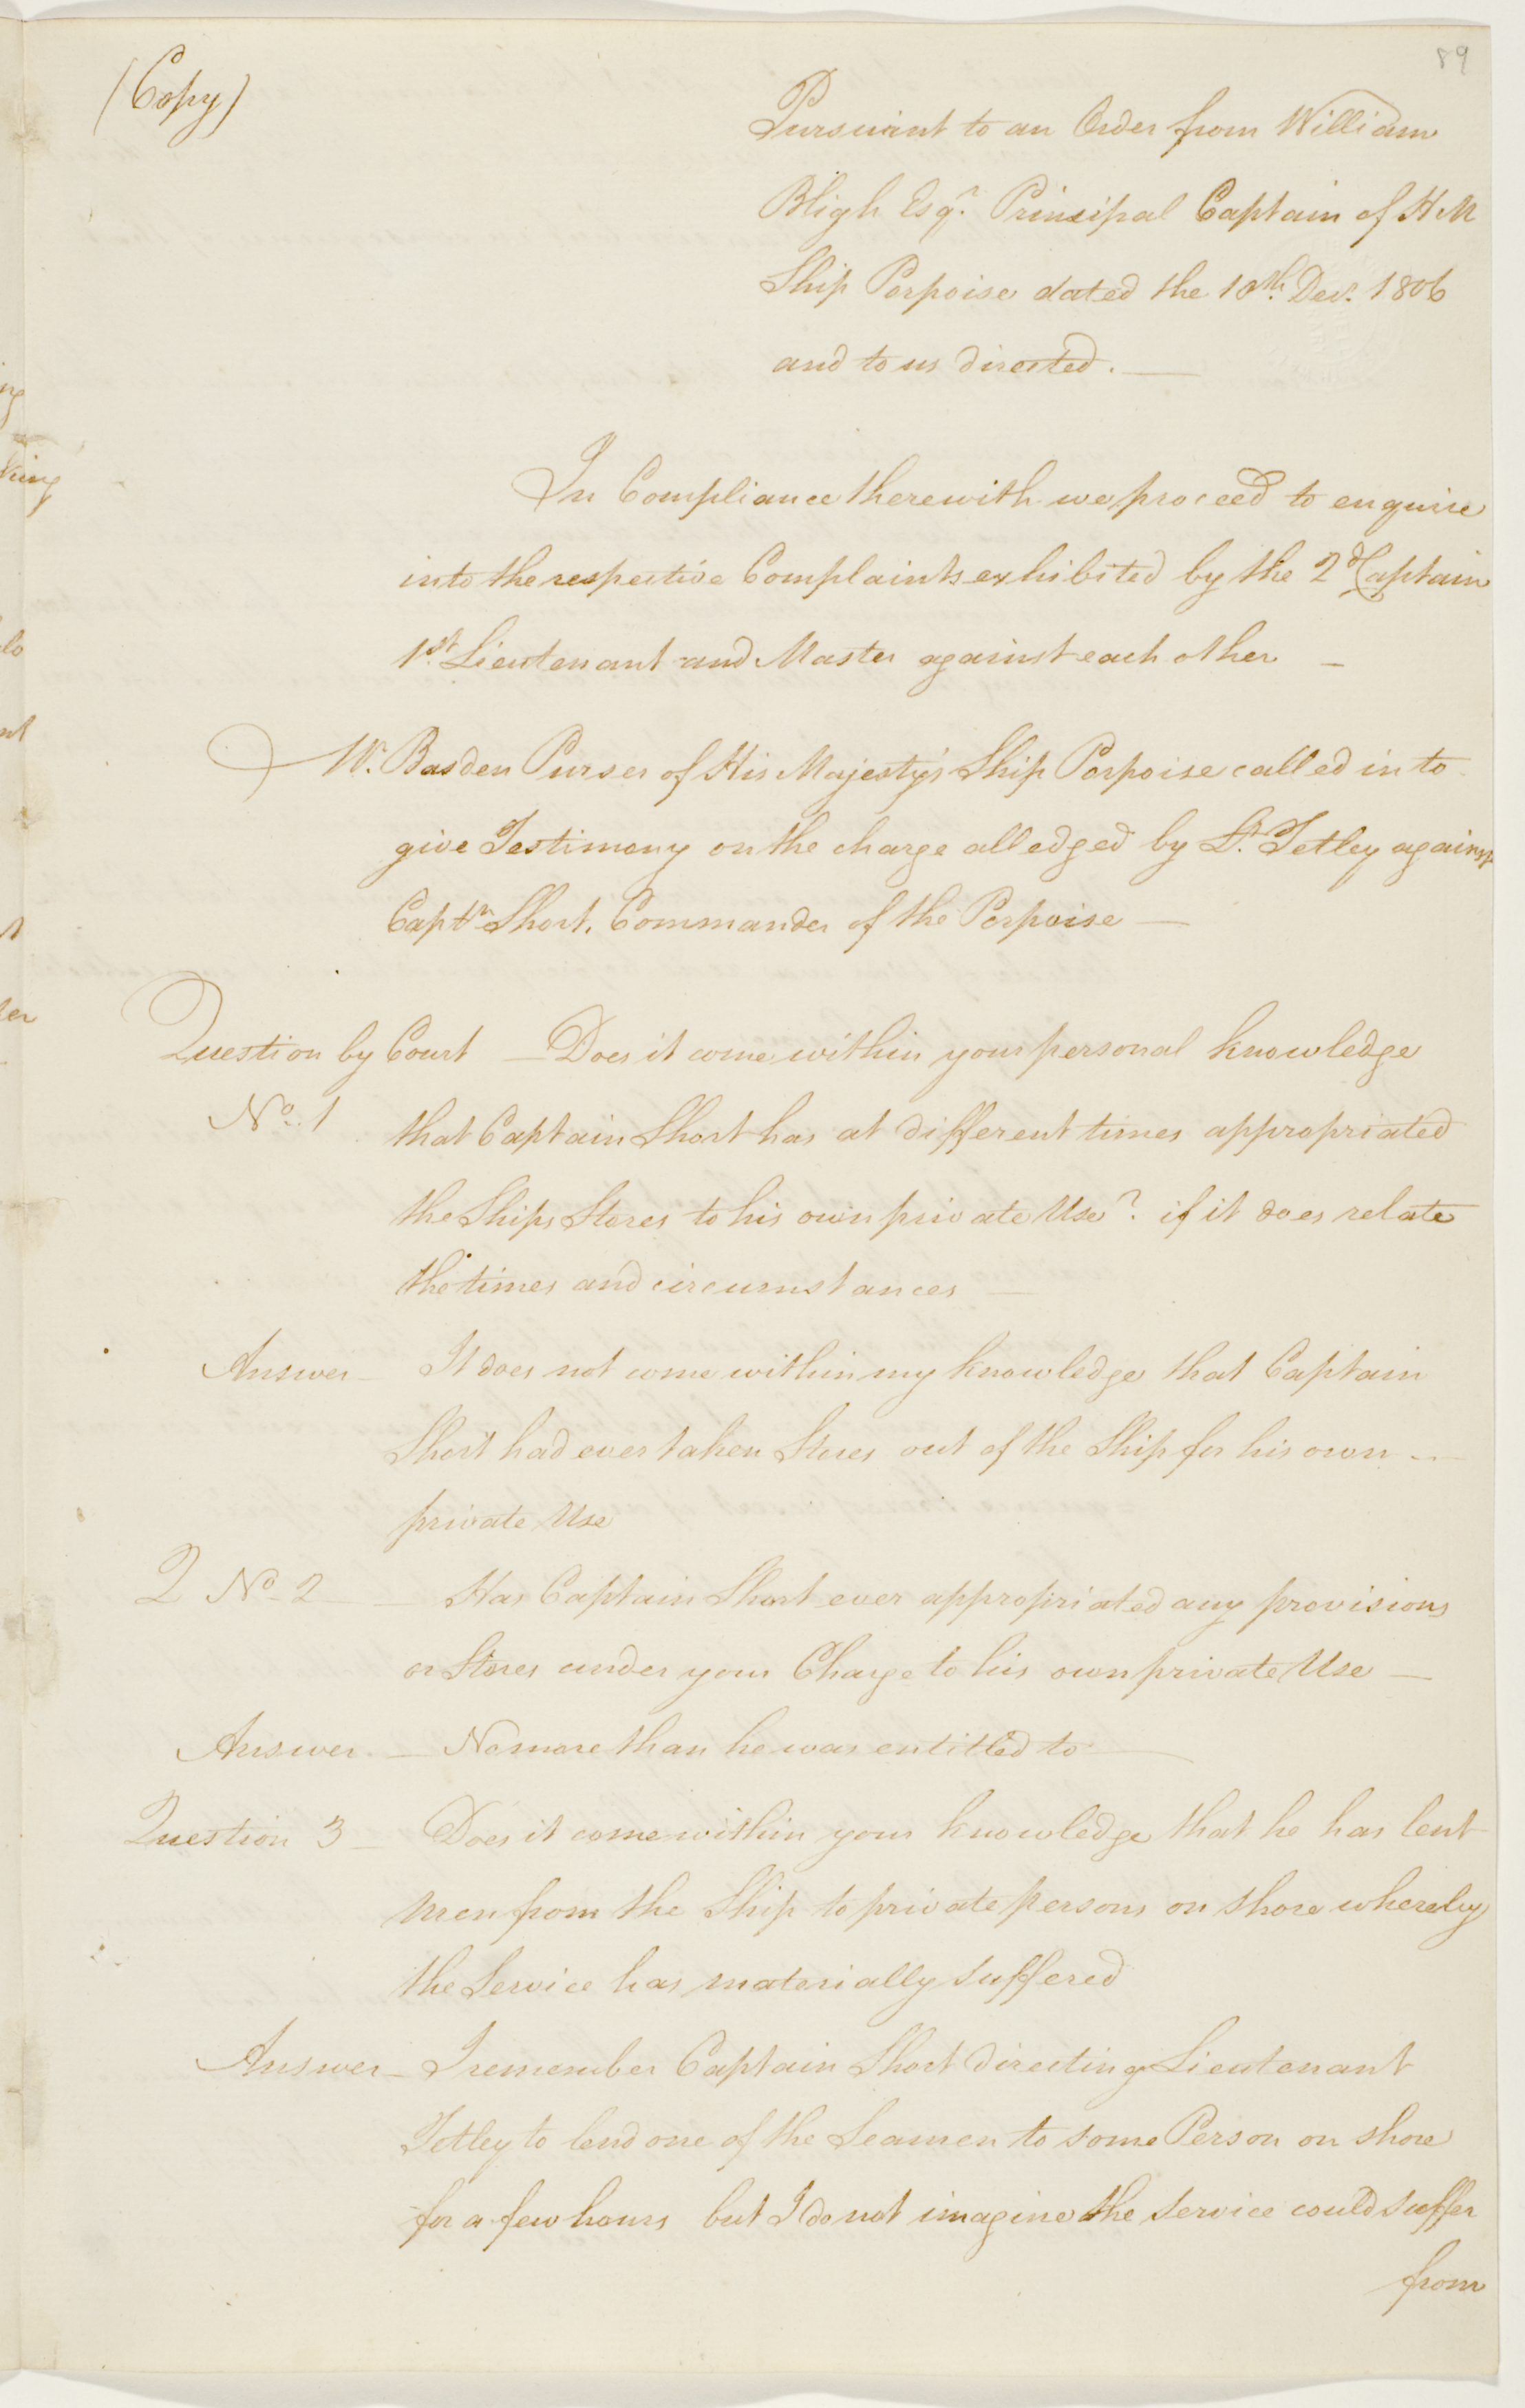 89
(Copy)
Pursuant to an Order from William
Bligh Esqr. Principal Captain of H M
Ship Porpoise dated the 10th. Decr. 1806
and to us directed. —
In Compliance therewith we proceed to enquire
into the respective Complaints exhibited by the 2d Captain
1st. Lieutenant and Master against each other —
W. Basden Purser of His Majesty's Ship Porpoise called in to
give Testimony on the charge alledged by Lt. Tetley against
Captn Short, Commander of the Porpoise —
Question by Court — Does it come within your personal knowledge
No. 1 that Captain Short has at different times appropriated
the Ships Stores to his own private Use? if it does relate
the times and circumstances —
Answer — It does not come within my knowledge that Captain
Short had ever taken Stores out of the Ship for his own —
private Use
Q No 2 — Has Captain Short ever appropriated any provisions
or Stores under your Charge to his own private Use —
Answer — No more than he was entitled to —
Question 3 — Does it come within your knowledge that he has lent
men from the Ship to private persons on shore whereby
the Service has materially suffered
Answer — I remember Captain Short directing Lieutenant
Tetley to lend one of the Seamen to some Person on shore
for a few hours but I do not imagine the service could suffer
from